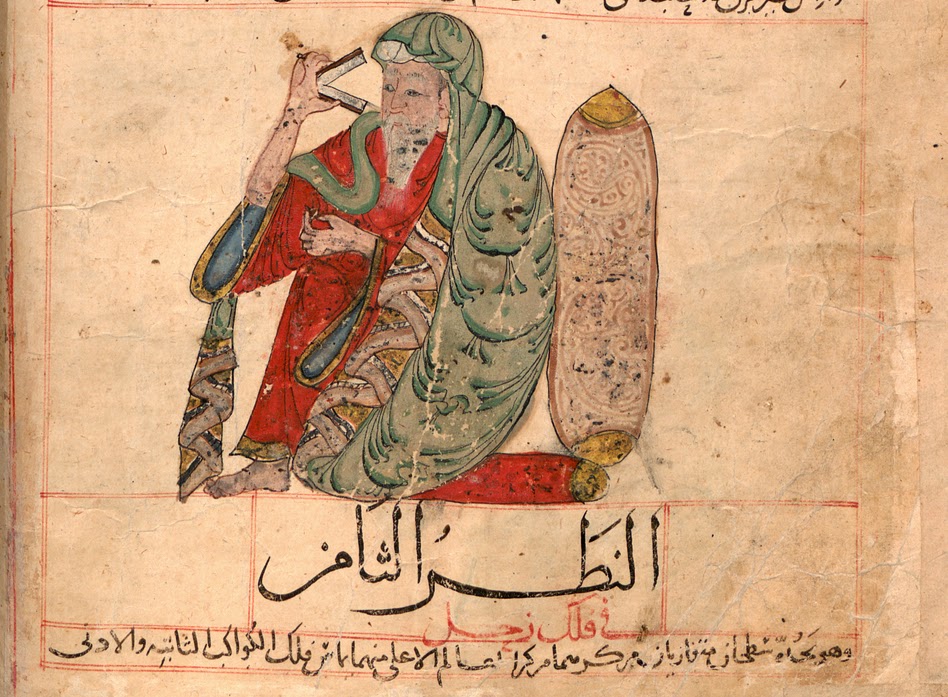 النَظَرُ الثَامن
في فلك زحل
وهو يحده سطحان متوازيان مركزهما مركز العالم الاعلى منهما يماس فلك الكواكب الثابتة والادنى